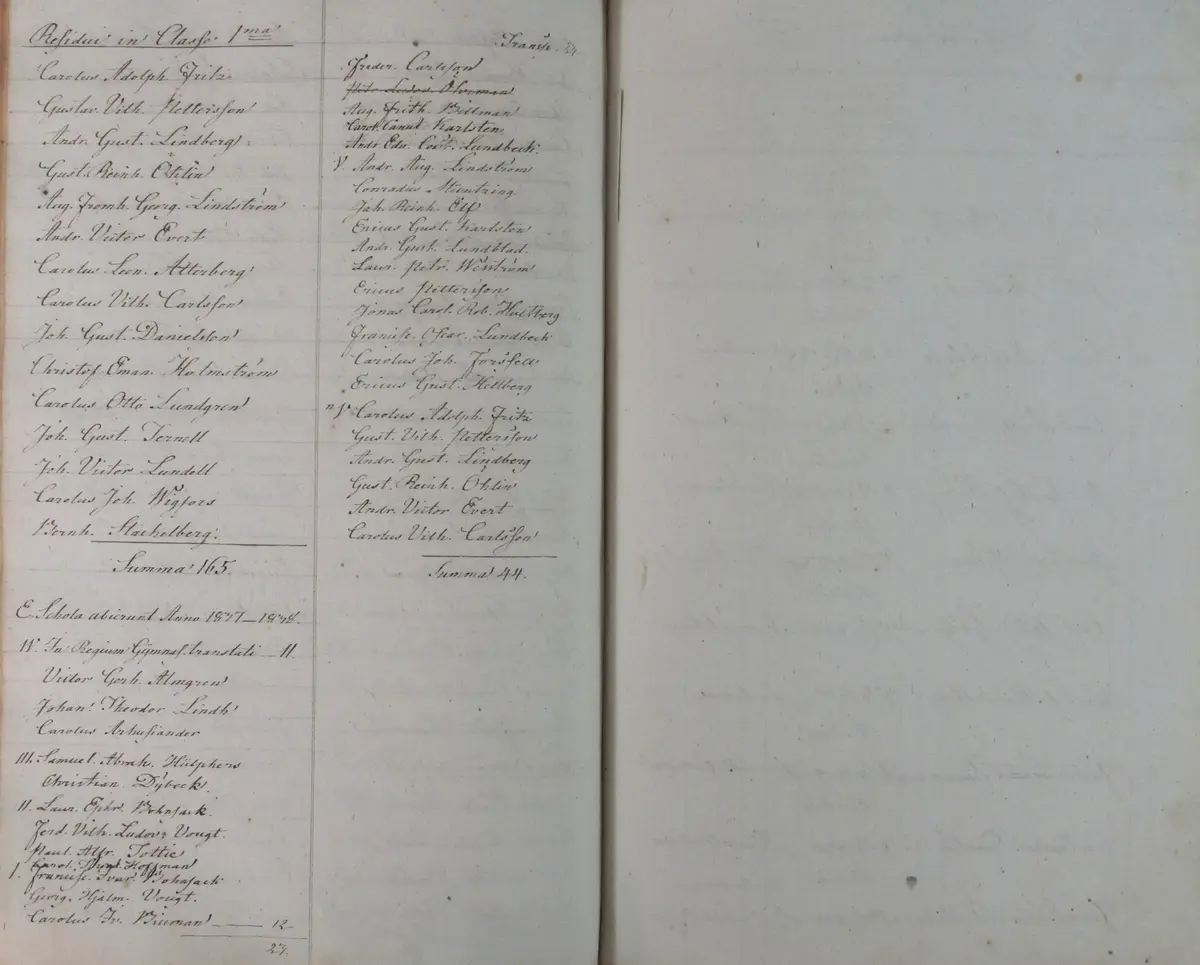 Residui in Classe 1ma
Carolus Adolph Fritz
Gustav. Vilh. Pettersson
Andr. Gust. Lindberg
Gust. Reinh. Öhlin
Aug. Fromh. Georg. Lindström
Andr. Victor Evert
Carolus Leon. Atterberg
Carolus Vilh. Carlsson
Joh. Gust. Danielsson
Christof. Eman. Holmström
Carolus Otto Lundgren
Joh. Gust. Ternell
Joh. Victor Lundell
Carolus Joh. Wigfors
Bernh. Stackelberg.
Summa 165.
E Schola abierunt Anno 1837—1838.
IV. In Regium Gymnas. translati — 11.
Victor Gerh. Almgren
Johan. Theodor Lindh
Carolus Arhusiander
III. Samuel. Abrah. Hülphers
Christian Dÿbeck.
II. Laur. Ephr. Bohnsack.
Ferd. Vilh. Ludov. Vougt.
Paul. Alfr. Tottie
Carol. Hoffman
I. Francisc. Ivar Bohnsack
Georg. Hjalm. Vougt.
Carolus Fr. — 12
23.
Transp. 23
Freder. Carlsson
Ludov. Öhrman
Aug. Frith. Billman
Carol. Canut. Karlsten
Andr. Edv. Lundbeck.
V. Andr. Aug. Lindström
Conradus
Joh. Reinh. Elf
Ericus Gust. Karlsten
Andr. Gust. Lundblad
Laur. Petr. Wiström
Ericus Pettersson
Jonas Carol. Rob. Hultberg
Francisc. Oscar. Lundbeck
Carolus Joh. Forsfelt
Ericus Gust. Hellberg
n.V. Carolus Adolph. Fritz
Gust. Vilh. Pettersson
Andr. Gust. Lindberg
Gust. Reinh. Öhlin
Andr. Victor Evert
Carolus Vilh. Carlsson
Summa 44.